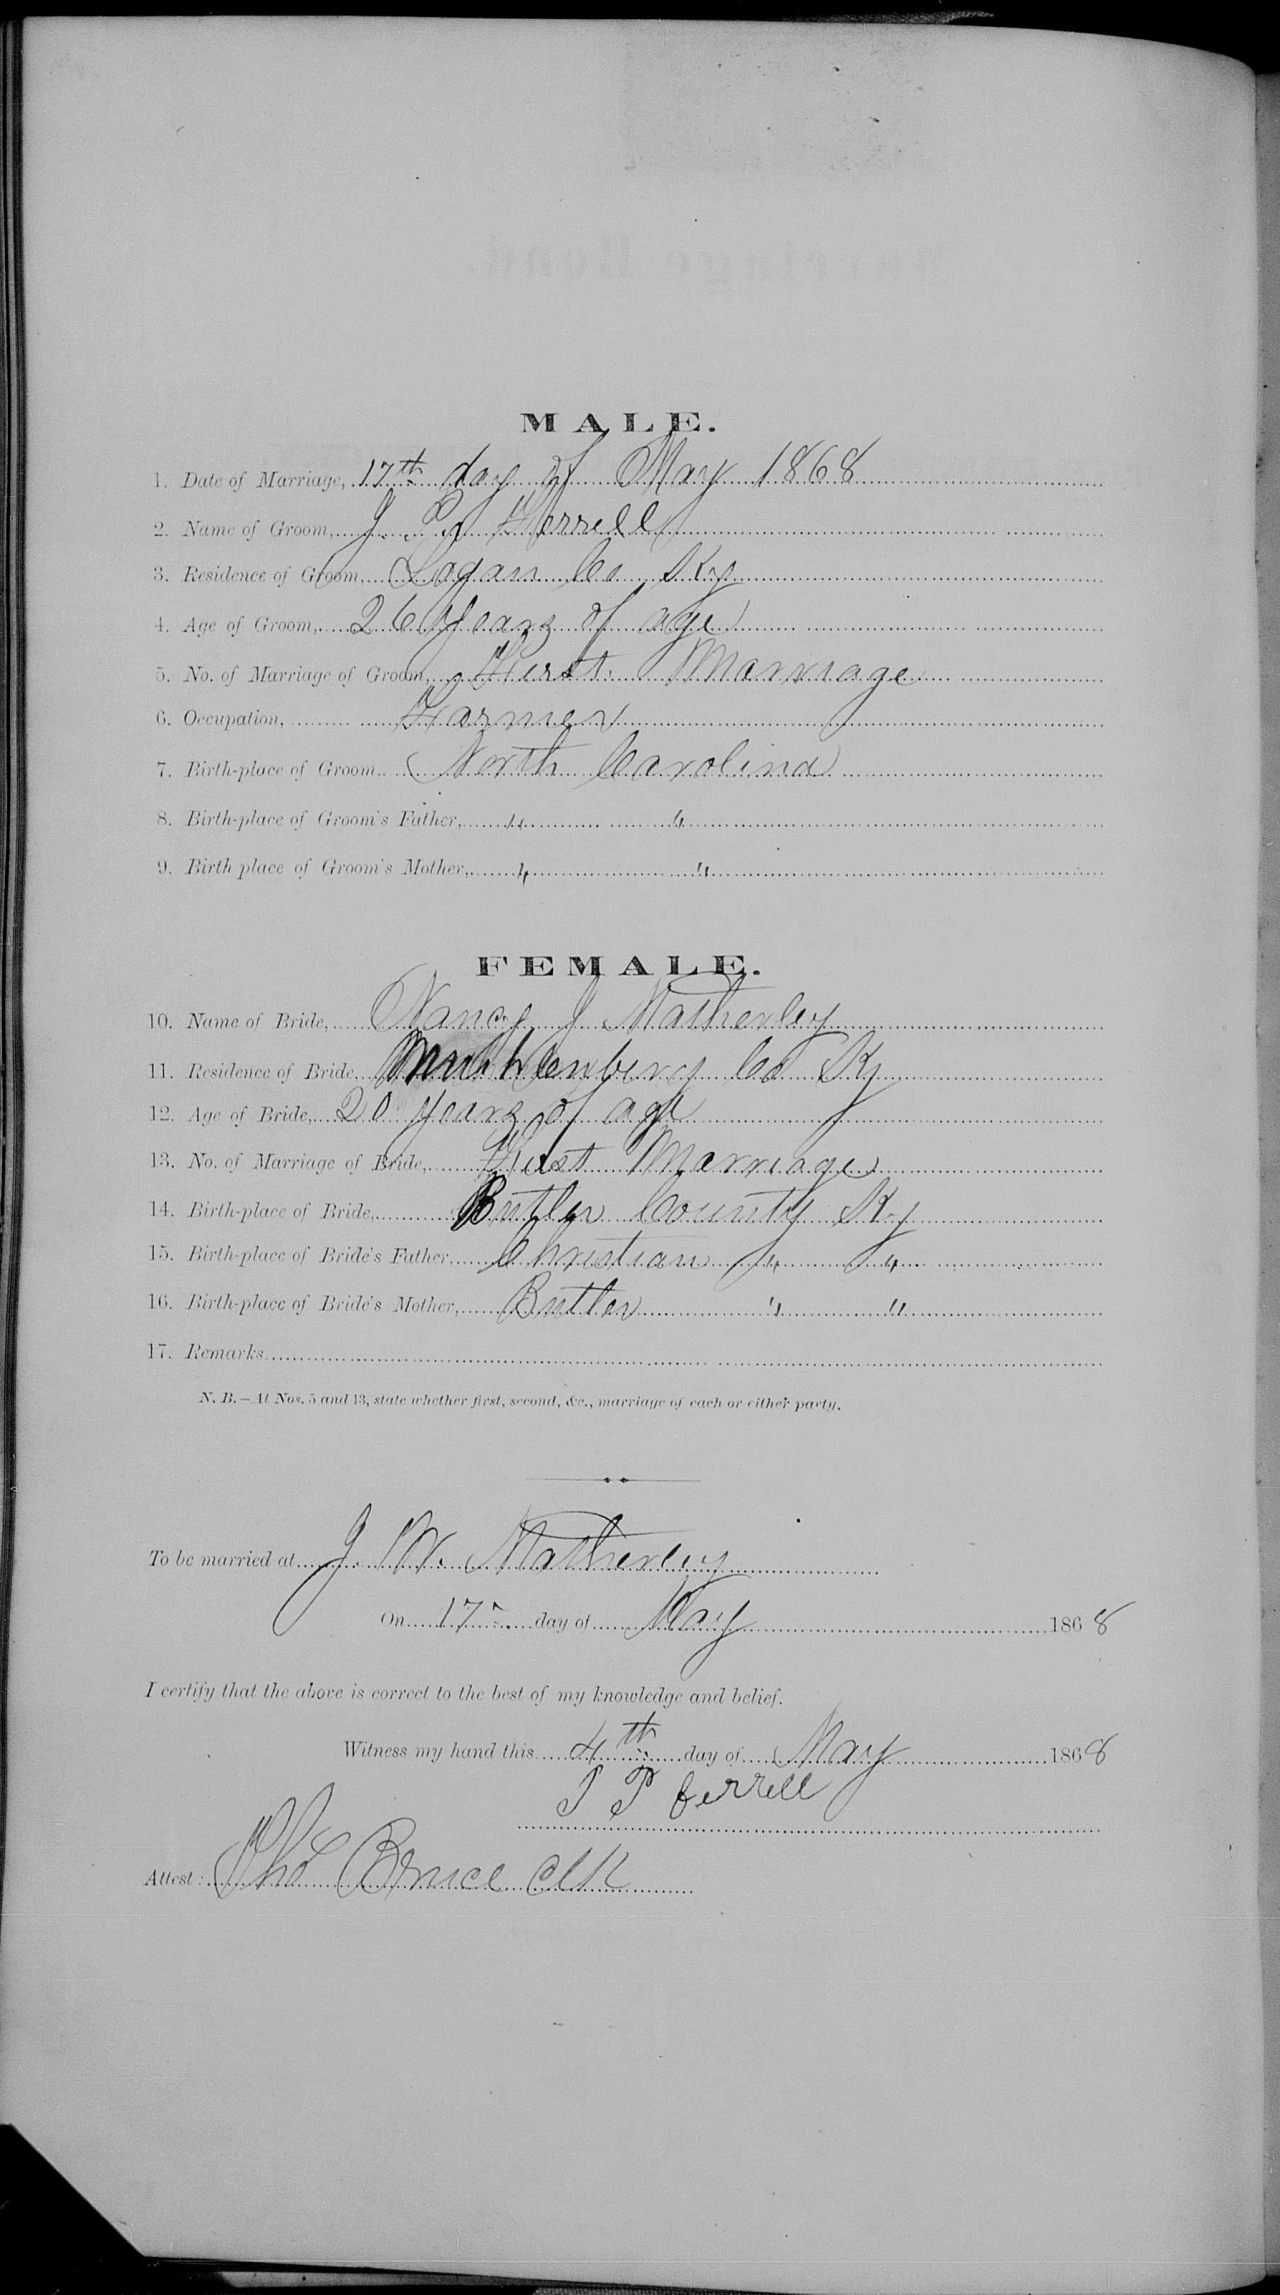 MALE.
1. Date of Marriage, 17th day of May 1868
2. Name of Groom, J. P. Ferrell
3. Residence of Groom, Logan Co Ky
4. Age of Groom, 26 Years of age
5. No. of Marriage of Groom, First Marriage
6. Occupation, Farmer
7. Birth-place of Groom North Carolina
8. Birth-place of Groom's Father, " "
9. Birth place of Groom's Mother, " "
FEMALE.
10. Name of Bride, Nancy J Matherley
11. Residence of Bride Muhlenberg Co Ky
12. Age of Bride, 20 years of age
13. No. of Marriage of Bride, First Marriage
14. Birth-place of Bride, Butler County Ky
15. Birth-place of Bride's Father, Christian " "
16. Birth-place of Bride's Mother, Butler " "
17. Remarks
N. B.—At Nos. 5 and 13, state whether first, second, &c., marriage of each or either party.
To be married at J. W. Matherley
On 17th day of May 1868
I certify that the above is correct to the best of my knowledge and belief.
Witness my hand this 4th day of May 1868
J P ferrell
Attest: Tho Bruce Clk